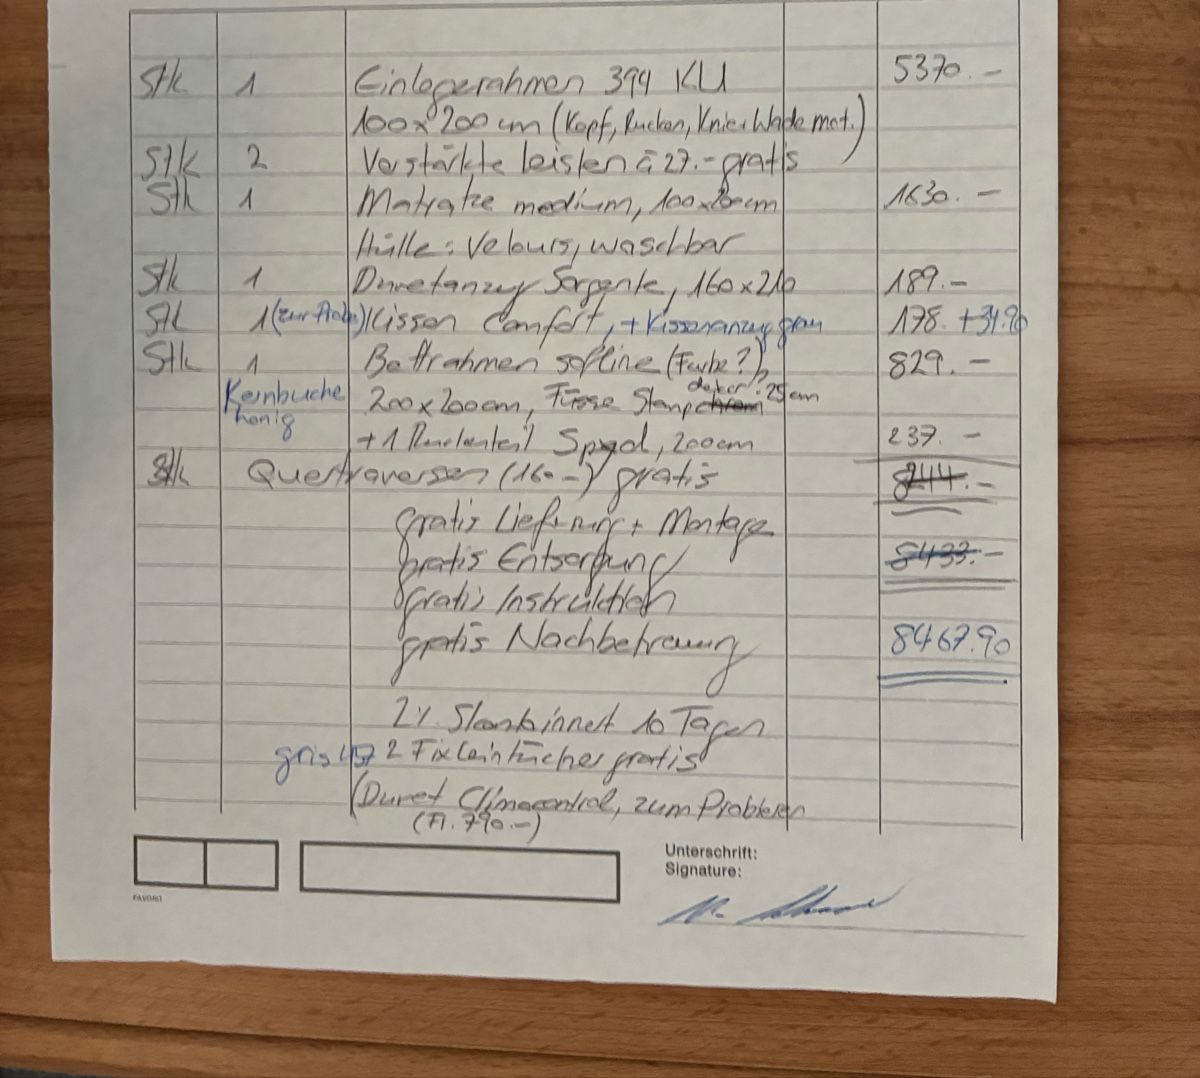 Stk 1 Einlegerahmen 394 KU 5370.–
100x200cm (Kopf, Rücken, Knie+Wade mot.)
Stk 2 Verstärkte Leisten à 27.– gratis
Stk 1 Matratze medium, 100x200cm 1630.–
Hülle: Velours, waschbar
Stk 1 Duvetanzug Sorgente, 160x210 189.–
Stk 1 (zur Probe) Kissen Comfort, + Kissenanzug grau 178. +34.90
Stk 1 Bettrahmen softline (Farbe?), 829.–
Kernbuche honig 200x200cm, Füsse 25cm
+1 Rückenteil 200cm 237.–
Stk Quertraversen (160.–) gratis 8244.–
gratis Lieferung + Montage
gratis Entsorgung 8433.–
gratis Instruktion
gratis Nachbetreuung 8467.90
2% Skonto innert 10 Tagen
gris 457 2 Fixleintücher gratis
(Duvet Climacontrol, zum Probieren
(Fr. 790.–)
Unterschrift:
Signature:
FAVORIT